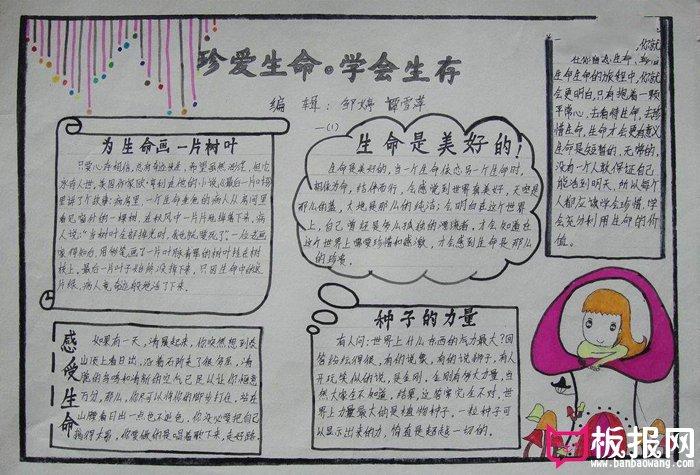 珍爱生命。学会生存
编 辑：邹婷
(1)
为生命画一片树叶
只要心存相信，总有奇迹发生，希望虽然渺茫，但它
永存人世。美国作家欧·亨利在他的小说《最后一片叶》
里讲了个故事：病房里，一个生命垂危的病人从房间里
看见窗外的一棵树，在秋风中一片片地掉落下来。病
人
说：“当树叶全部掉光时，我也就要死了”。一位老画
家得知后，用彩笔画了一片叶脉青翠的树叶挂在树
枝上。最后一片叶子始终没掉下来，只因生命中的这
片绿，病人竟奇迹般地活了下来。
生命是美好的！
生命是美好的，当一个生命依恋另一个生命时，
相依为命，结伴而行，会感觉到世界真美好，天空是
那么的蓝，大地是那么的纯洁；会明白在这个世界
上，自己曾经是多么孤独的漂流着，才会知道在
这个世界上需要珍惜和感激，才会感到生命是那么
的珍贵。
你就
生命的旅程中，你就
会更明白，只有抱着一颗
平常心，去看待生命，去珍
惜生命，生命才会更有意义
生命是短暂的，无常的，
没有一个人敢保证自己
能活到明天，所以每个
人都应该学会珍惜，学
会充分利用生命的价
值。
感爱生命
如果有一天，清晨起来，你突然想到泰
山顶上看日出，沿着石阶走了很多里，清
脆的鸟鸣和清新的空气已足以让你惬意
万分，那么，你尽可以将你的脚步打住，站在
山腰看日出一点也不逊色，你没必要把自己
搞得太累，你要做的是唱着歌下来，走好路。
种子的力量
有人问：世界上什么东西的气力最大？回
答纷纭得很，有的说象，有的说狮子，有人
开玩笑似的说，是金刚，金刚有多大力量，当
然大家全不知道。结果，这答案完全不对，世
界上力量最大的是植物种子。一粒种子可
以显示出来的力，简直是超越一切的。
板报网
www.banbaowang.com